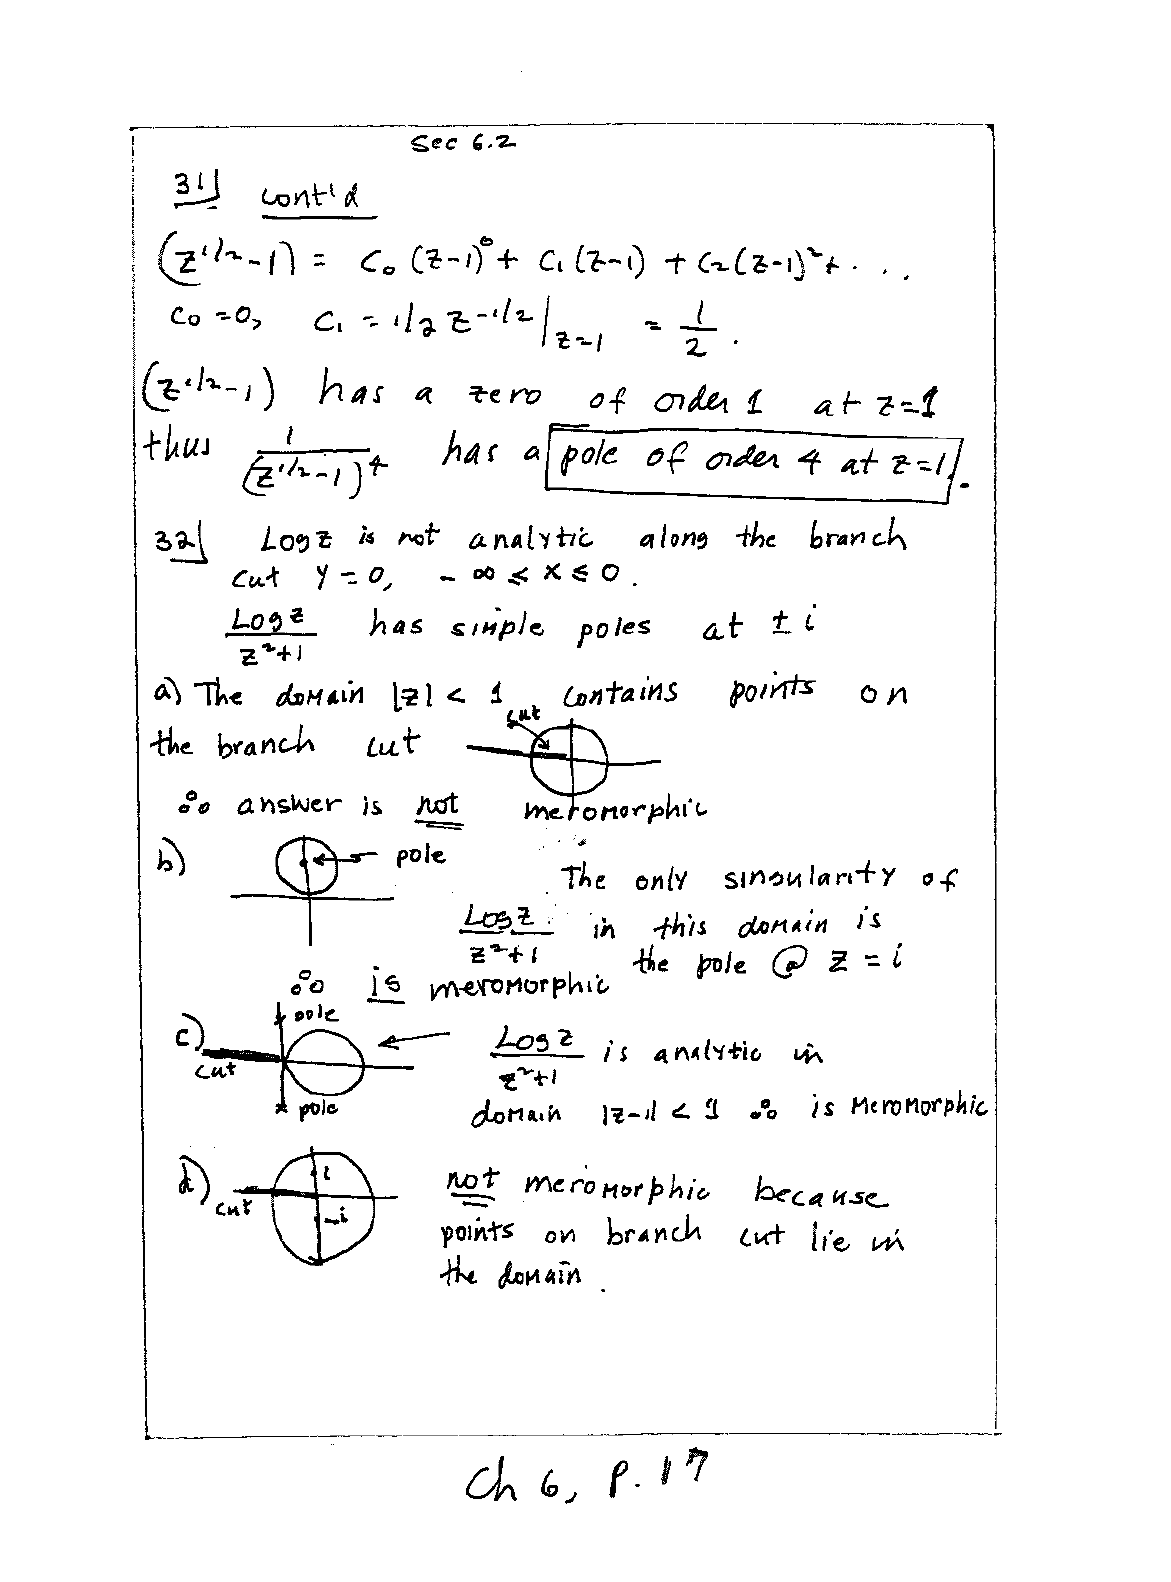 Sec 6.2
31] cont'd
(z^{1/2}-1) = c₀(z-1)⁰ + c₁(z-1) + c₂(z-1)² + ....
c₀ = 0, c₁ = 1/2 z^{-1/2}|_{z=1} = 1/2.
(z^{1/2}-1) has a zero of order 1 at z=1
thus 1/(z^{1/2}-1)⁴ has a pole of order 4 at z=1.
32] Log z is not analytic along the branch
cut y=0, -∞ ≤ x ≤ 0.
Log z/(z²+1) has simple poles at ± i
a) The domain |z| < 1 contains points on
cut
the branch cut
∴ answer is not meromorphic
b) pole
The only singularity of
Log z/(z²+1) in this domain is
the pole @ z = i
∴ is meromorphic
pole
c) Log z/(z²+1) is analytic in
cut
pole
domain |z-1| < 1 ∴ is meromorphic
d) cut i -i
not meromorphic because
points on branch cut lie in
the domain.
Ch 6, p. 17